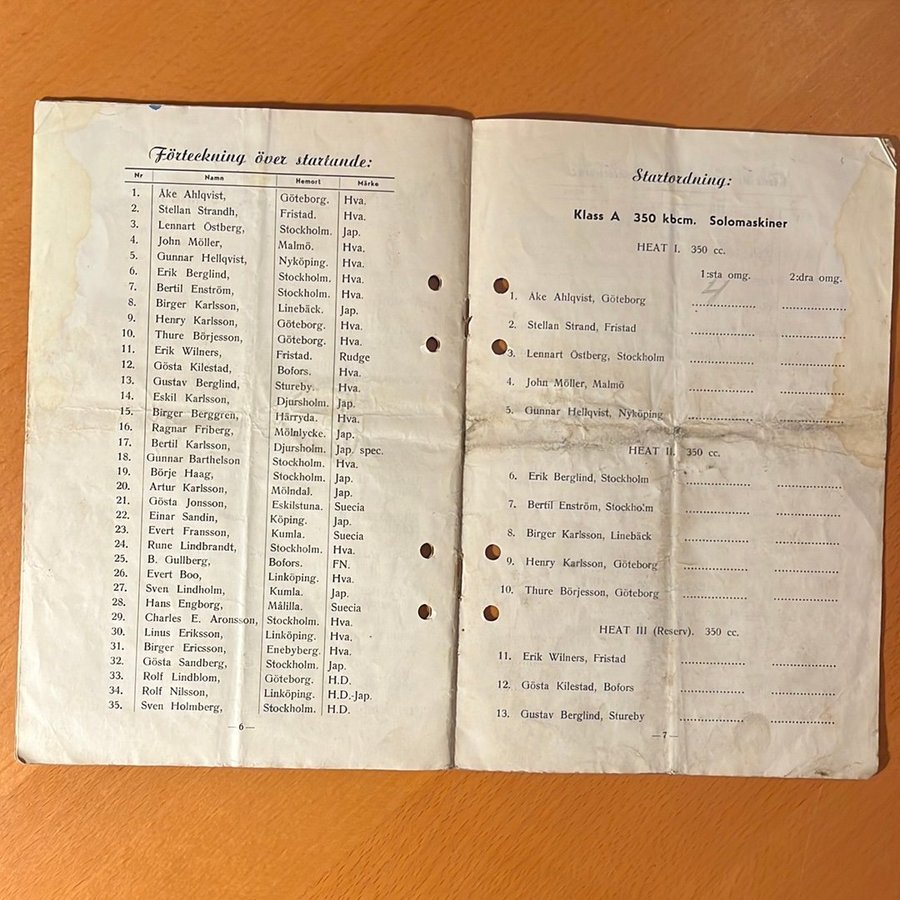 Förteckning över startande:
Nr Namn Hemort Märke
1. Åke Ahlqvist, Göteborg. Hva.
2. Stellan Strandh, Fristad. Hva.
3. Lennart Östberg, Stockholm. Jap.
4. John Möller, Malmö. Hva.
5. Gunnar Hellqvist, Nyköping. Hva.
6. Erik Berglind, Stockholm. Hva.
7. Bertil Enström, Stockholm. Hva.
8. Birger Karlsson, Linebäck. Jap.
9. Henry Karlsson, Göteborg. Hva.
10. Thure Börjesson, Göteborg. Hva.
11. Erik Wilners, Fristad. Rudge
12. Gösta Kilestad, Bofors. Hva.
13. Gustav Berglind, Stureby. Hva.
14. Eskil Karlsson, Djursholm. Jap.
15. Birger Berggren, Härryda. Hva.
16. Ragnar Friberg, Mölnlycke. Jap.
17. Bertil Karlsson, Djursholm. Jap. spec.
18. Gunnar Barthelson Stockholm. Hva.
19. Börje Haag, Stockholm. Jap.
20. Artur Karlsson, Mölndal. Jap.
21. Gösta Jonsson, Eskilstuna. Suecia
22. Einar Sandin, Köping. Jap.
23. Evert Fransson, Kumla. Suecia
24. Rune Lindbrandt, Stockholm. Hva.
25. B. Gullberg, Bofors. FN.
26. Evert Boo, Linköping. Hva.
27. Sven Lindholm, Kumla. Jap.
28. Hans Engborg, Målilla. Suecia
29. Charles E. Aronsson, Stockholm. Hva.
30. Linus Eriksson, Linköping. Hva.
31. Birger Ericsson, Enebyberg. Hva.
32. Gösta Sandberg, Stockholm. Jap.
33. Rolf Lindblom, Göteborg. H.D.
34. Rolf Nilsson, Linköping. H.D.-Jap.
35. Sven Holmberg, Stockholm. H.D.
—6—
Startordning:
Klass A 350 kbcm. Solomaskiner
HEAT I. 350 cc.
1:sta omg. 2:dra omg.
1. Åke Ahlqvist, Göteborg
2. Stellan Strand, Fristad
3. Lennart Östberg, Stockholm
4. John Möller, Malmö
5. Gunnar Hellqvist, Nyköping
HEAT II. 350 cc.
6. Erik Berglind, Stockholm
7. Bertil Enström, Stockholm
8. Birger Karlsson, Linebäck
9. Henry Karlsson, Göteborg
10. Thure Börjesson, Göteborg
HEAT III (Reserv). 350 cc.
11. Erik Wilners, Fristad
12. Gösta Kilestad, Bofors
13. Gustav Berglind, Stureby
—7—